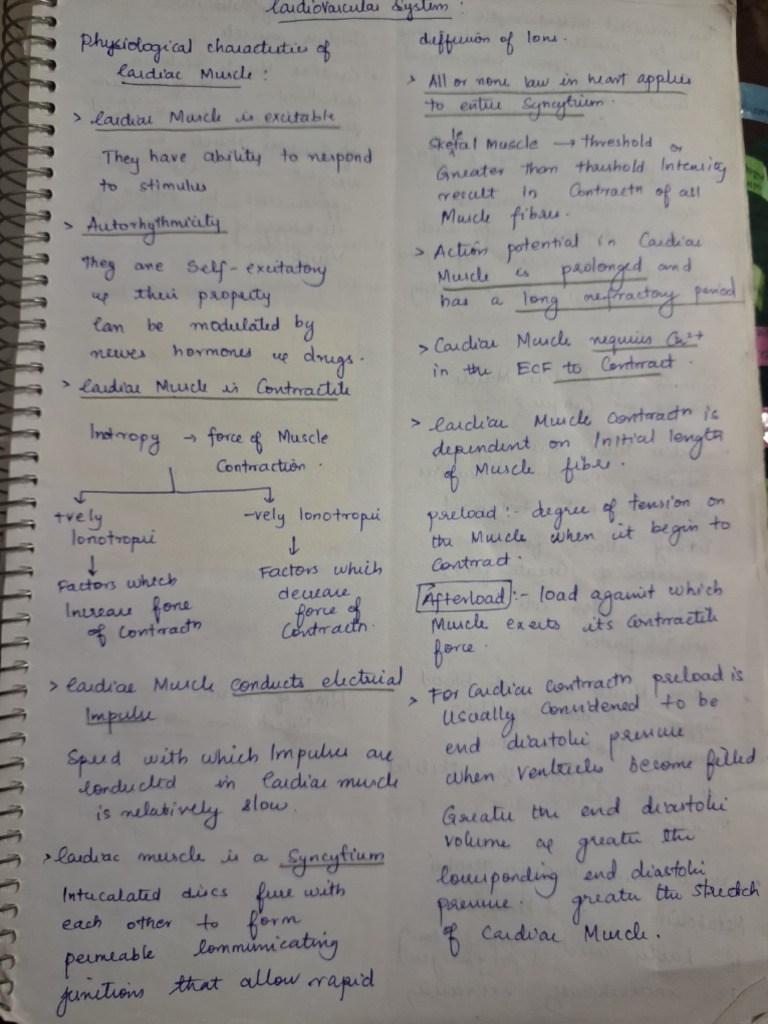 Cardiovascular System :
Physiological characteristics of
Cardiac Muscle :
> Cardiac Muscle is excitable
They have ability to respond
to stimulus
> Autorhythmicity
They are Self-excitatory
& their property
Can be modulated by
nerves hormones & drugs.
> Cardiac Muscle is Contractile
Inotropy → force of Muscle
Contraction.
+vely
Ionotropic
Factors which
Increase force
of Contractn
-vely Ionotropic
Factors which
decrease
force of
Contractn.
> Cardiac Muscle conducts electrical
Impulse
Speed with which Impulses are
Conducted in Cardiac muscle
is relatively slow.
> Cardiac muscle is a Syncytium
Intercalated discs fuse with
each other to form
permeable Communicating
junctions that allow rapid
diffusion of Ions.
> All or none law in heart applies
to entire Syncytium.
Skeletal Muscle → threshold or
Greater than threshold Intensity
result in Contractn of all
Muscle fibres.
> Action potential in Cardiac
Muscle is prolonged and
has a long refractory period
> Cardiac Muscle requires Ca²⁺
in the ECF to Contract.
> Cardiac Muscle Contractn is
dependent on Initial length
of Muscle fibre.
preload :- degree of tension on
the Muscle when it begin to
Contract.
Afterload :- load against which
Muscle exerts its Contractile
force.
> For Cardiac Contractn preload is
Usually Considered to be
end diastolic pressure
when ventricles become filled
Greater the end diastolic
volume & greater the
Corresponding end diastolic
pressure. greater the stretch
of Cardiac Muscle.